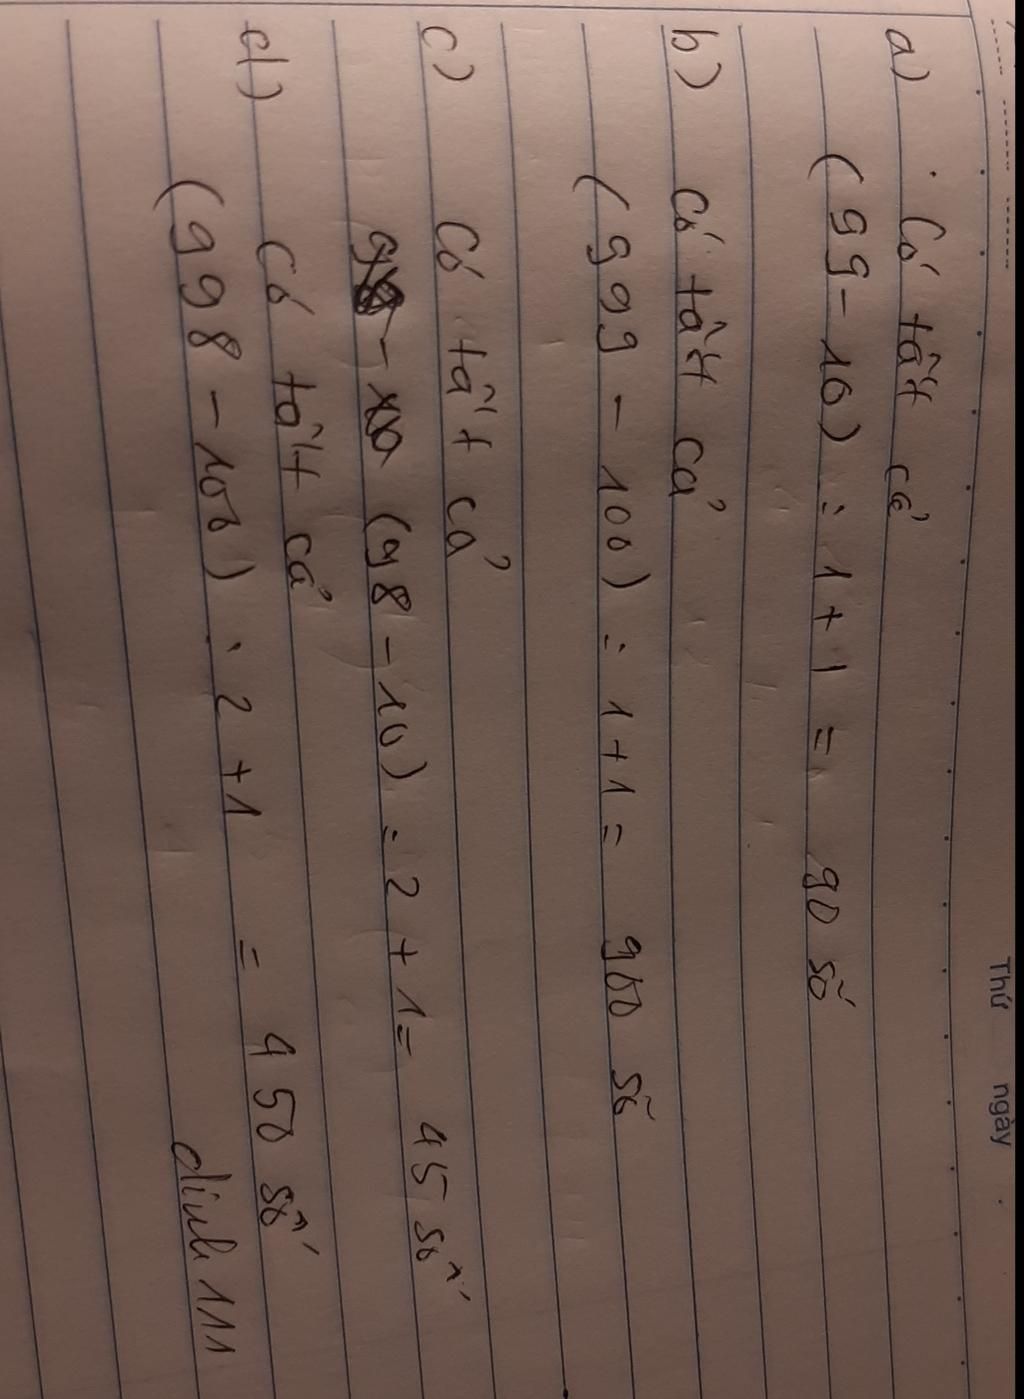 Thứ ngày
a) Có tất cả
(99 - 10) : 1 + 1 = 90 số
b) Có tất cả
(999 - 100) : 1 + 1 = 900 số
c) Có tất cả
(98 - 10) : 2 + 1 = 45 số
d) Có tất cả
(998 - 100) : 2 + 1 = 450 số
dinh 111